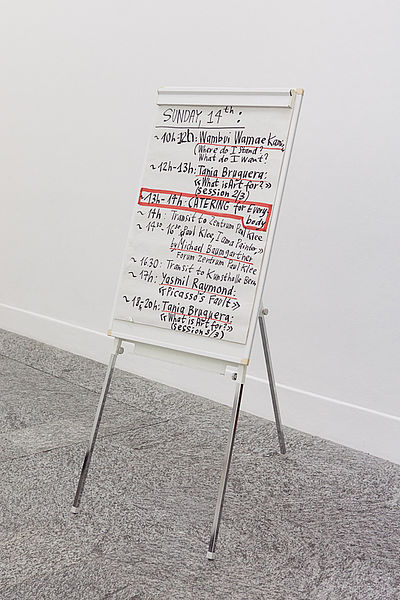 SUNDAY, 14th:
~ 10h-12h: Wambui Wamae Kam
(Where do I stand?
What do I want?
~ 12h-13h: Tania Bruguera:
«What is Art for?»
(session 2/3)
~ 13h-14h: CATERING for Every-
body
~ 14h: Transit to Zentrum Paul Klee
Paul Klee, I am a Painter»
by Michael Baumgartner
Forum Zentrum Paul Klee
~ 1630: Transit to Kunsthalle Bern
~ 17h: Yasmil Raymond:
«Picasso's Fault»
~ 18-20h: Tania Bruguera:
«What is Art for?»
(session 3/3)